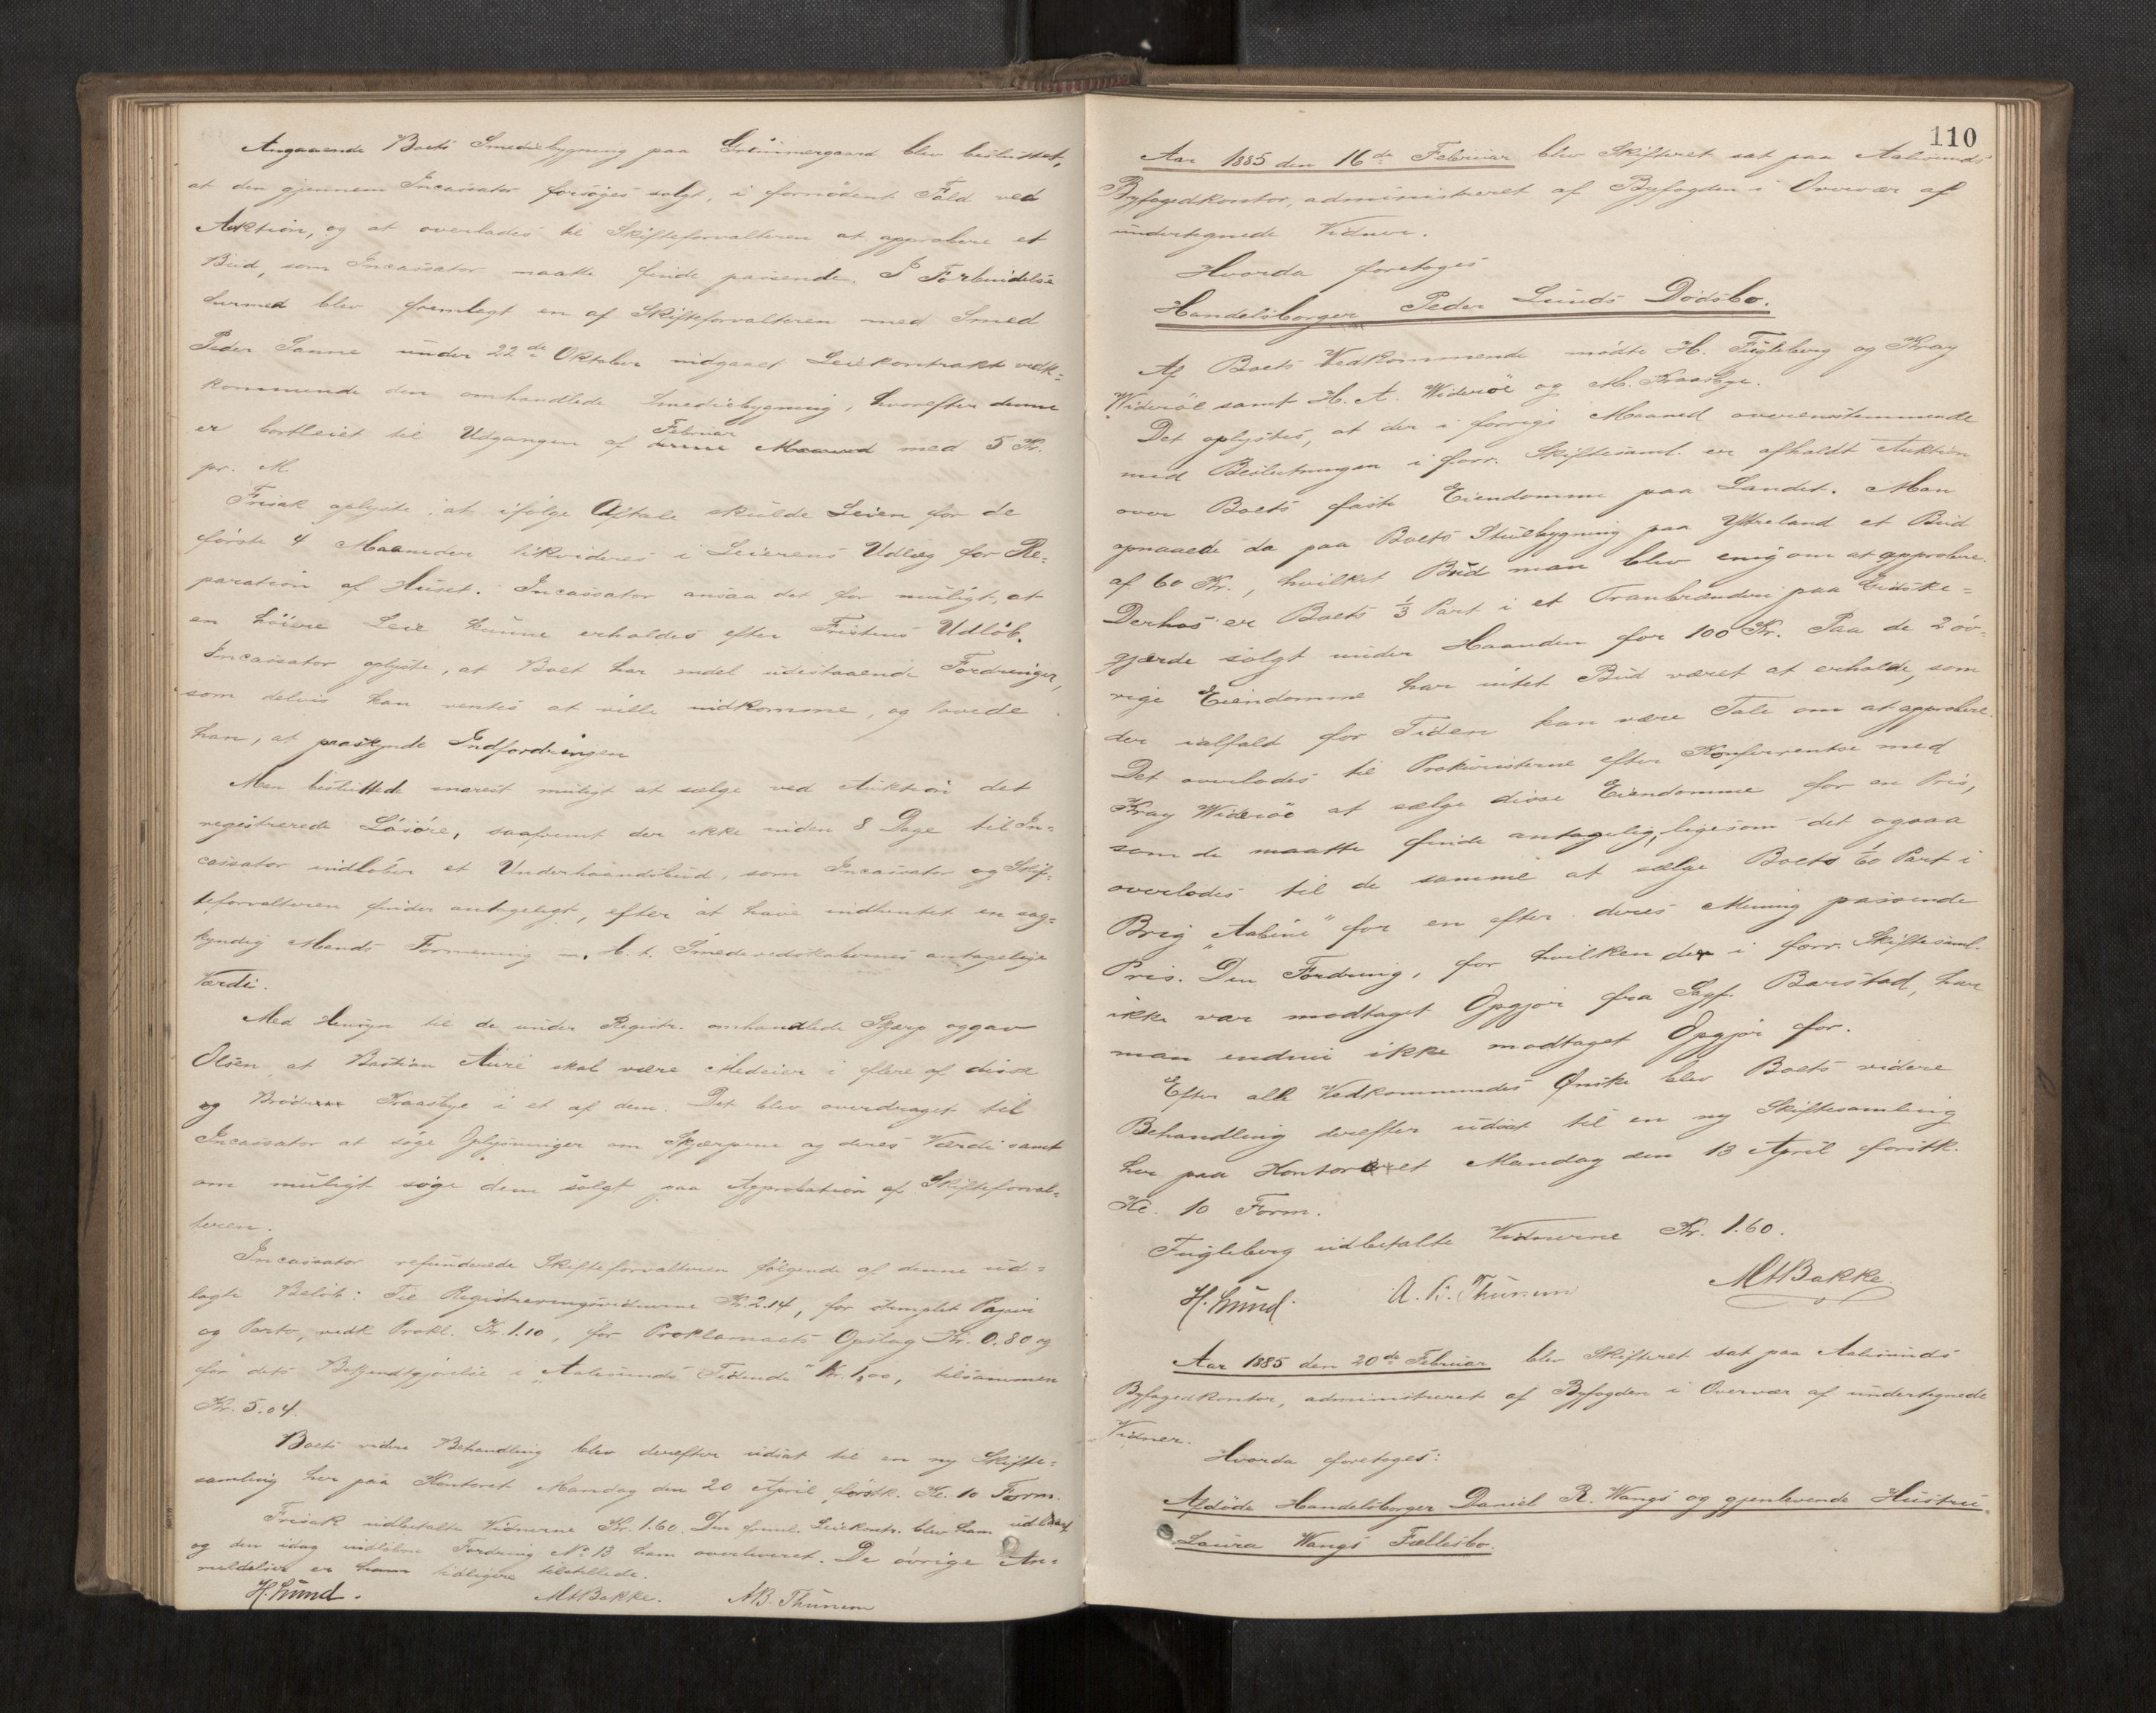 Angaaende Boets Smediebygning paa Grimmergaard blev besluttet,
at den gjennem Incassator forsøges solgt, i fornødent Fald ved
Auktion, og at overlades til Skifteforvalteren at approbere et
Bud, som Incassator maatte finde passende. I Forbindelse
hermed blev fremlagt en af Skifteforvalteren med Smed
Peder Sanne under 22de Oktober indgaaet Leiekontrakt ved-
kommende den omhandlede Smediebygning, hvorefter denne
er bortleiet til Udgangen af Februar med 5 Kr.
pr. M.
Frisak oplyste, at ifølge Aftale skulde Leien for de
første 4 Maaneder likvideres i Leierens Udlæg for Re-
paration af Huset. Incassator ansaa det for muligt, at
en høiere Leie kunne erholdes efter Fristens Udløb.
Incassator oplyste, at Boet har endel udestaaende Fordringer,
som delvis kan ventes at ville indkomme, og lovede
han, at paaskynde Indfordringen
Man besluttede snarest muligt at sælge ved Auktion det
registrerede Løsøre, saafremt der ikke inden 8 Dage til In-
cassator indløber et Underhaandsbud, som Incassator og Skif-
teforvalteren finder antageligt, efter at have indhentet en sag-
kyndig Mands Formening m. H. t. Smederedskabernes antagelige
Værdi.
Med Hensyn til de under Registr. omhandlede Skjærp opgav
Olsen at Bastian Aure skal være Medeier i flere af disse
og Brødrene Kraasbye i et af dem. Det blev overdraget til
Incassator at søge Oplysninger om Skjærpene og deres Værdi samt
om muligt søge dem solgt paa Approbation af Skifteforval-
teren.
Incassator refunderede Skifteforvalteren følgende af denne ud-
lagte Beløb: Til Registreringsvidnerne Kr. 2.14, for stemplet Papir
og Porto, vedk. Prokl. Kr. 1.10, for Proklamaets Opslag Kr. 0.80 og
for dets Bekjendtgjørelse i "Aalesunds Tidende" Kr. 1,00, tilsammen
Kr. 5.04.
Boets videre Behandling blev derefter udsat til en ny Skifte-
samling her paa Kontoret Mandag den 20 April førstk. Kl. 10 Form.
Frisak udbetalte Vidnerne Kr. 1.60. Den freml. Leiekontr. blev ham
og den idag indløbne Fordring No 13 ham overleveret. De øvrige An-
meldelser er ham tidligere tilstillede.
H. Lund. MABakke. AB. Thunem
110
Aar 1885 den 16de Februar blev Skifteret sat paa Aalesunds
Byfogedkontor, administreret af Byfogden i Overvær af
undertegnede Vidner.
Hvorda foretoges
Handelsborger Peder Lunds Dødsbo.
Af Boets Vedkommende mødte H. Fugleberg og Kray
Widerøe samt H. A. Widerøe og M. Kraasbye.
Det oplystes, at der i forrige Maaned overensstemmende
med Beslutningen i forr. Skiftesaml. er afholdt Auktion
over Boets faste Eiendomme paa Landet. Man
opnaaede da paa Boets Stuebygning paa Ytreland et Bud
af 60 Kr., hvilket Bud man blev enig om at approbere.
Derhos er Boets 1/3 Part i et Tranbrænderi paa Eidske-
gjærde solgt under Haanden for 100 Kr. Paa de 2 øv-
rige Eiendomme har intet Bud været at erholde, som
der ialfald for Tiden kan være Tale om at approbere.
Det overlodes til Prokuristerne efter Konferentse med
Kray Widerøe at sælge disse Eiendomme for en Pris,
som de maatte finde antagelig, ligesom det ogsaa
overlodes til de samme at sælge Boets 1/60 Part i
Brig "Aaline" for en efter deres Mening passende
Pris. Den Fordring, for hvilken der i forr. Skiftesaml.
ikke var modtaget Opgjør fra Sagf. Barstad, har
man endnu ikke modtaget Opgjør for.
Efter alle Vedkommendes Ønske blev Boets videre
Behandling derefter udsat til en ny Skiftesamling
her paa Kontoret Mandag den 13 April førstk.
Kl. 10 Form.
Fugleberg udbetalte Vidnerne Kr. 1.60.
H. Lund. A. B. Thunem MABakke.
Aar 1885 den 20de Februar blev Skifteret sat paa Aalesunds
Byfogedkontor, administreret af Byfogden i Overvær af undertegnede
Vidner.
Hvorda foretoges:
Afdøde Handelsborger Daniel R. Wangs og gjenlevende Hustru
Laura Wangs Fællesbo.